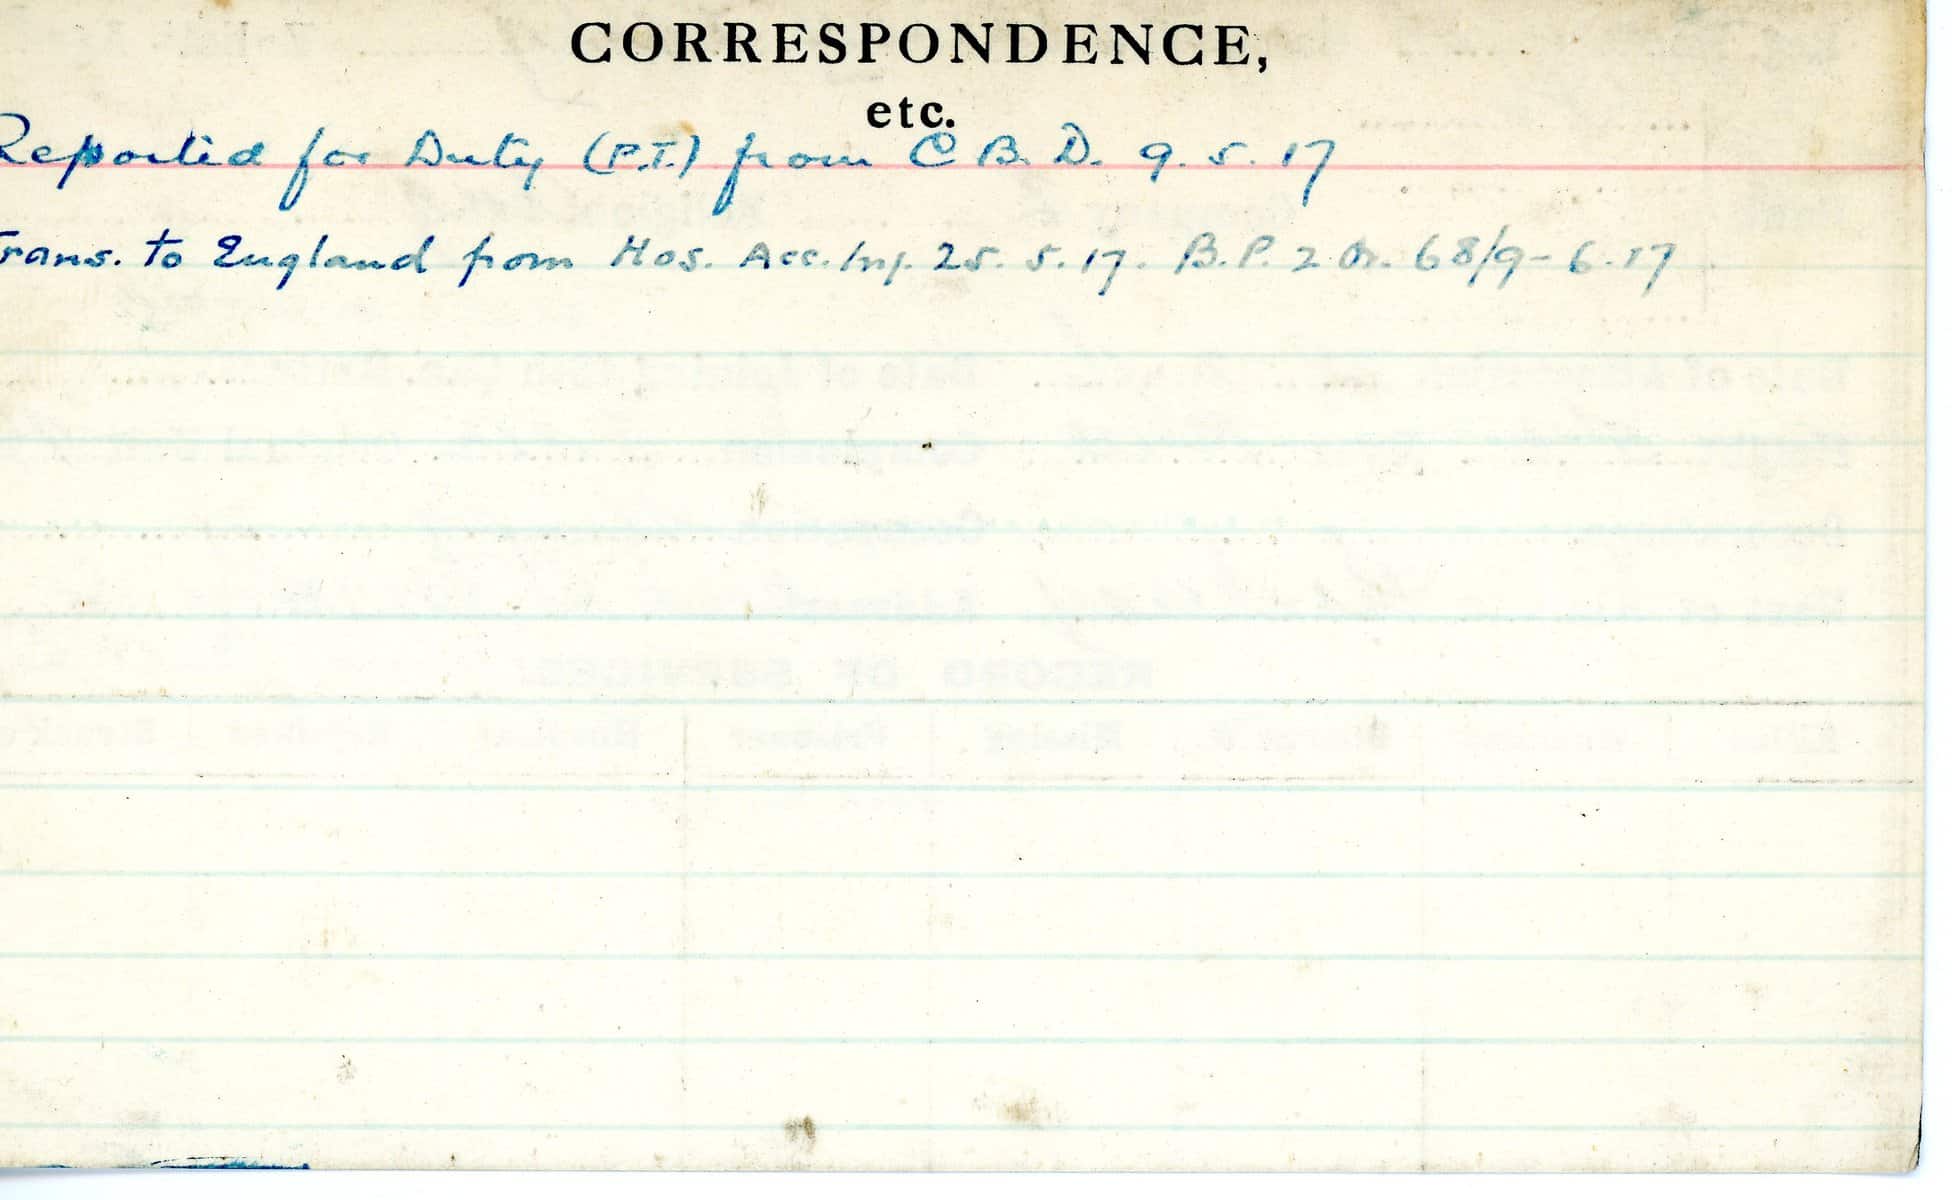 CORRESPONDENCE,
etc.
Reported for Duty (P.T.) from C B. D. 9. 5. 17
Trans. to England from Hos. Acc. Inj. 25. 5. 17. B. P. 2 Or. 68/9-6.17
RECORD OF SERVICES